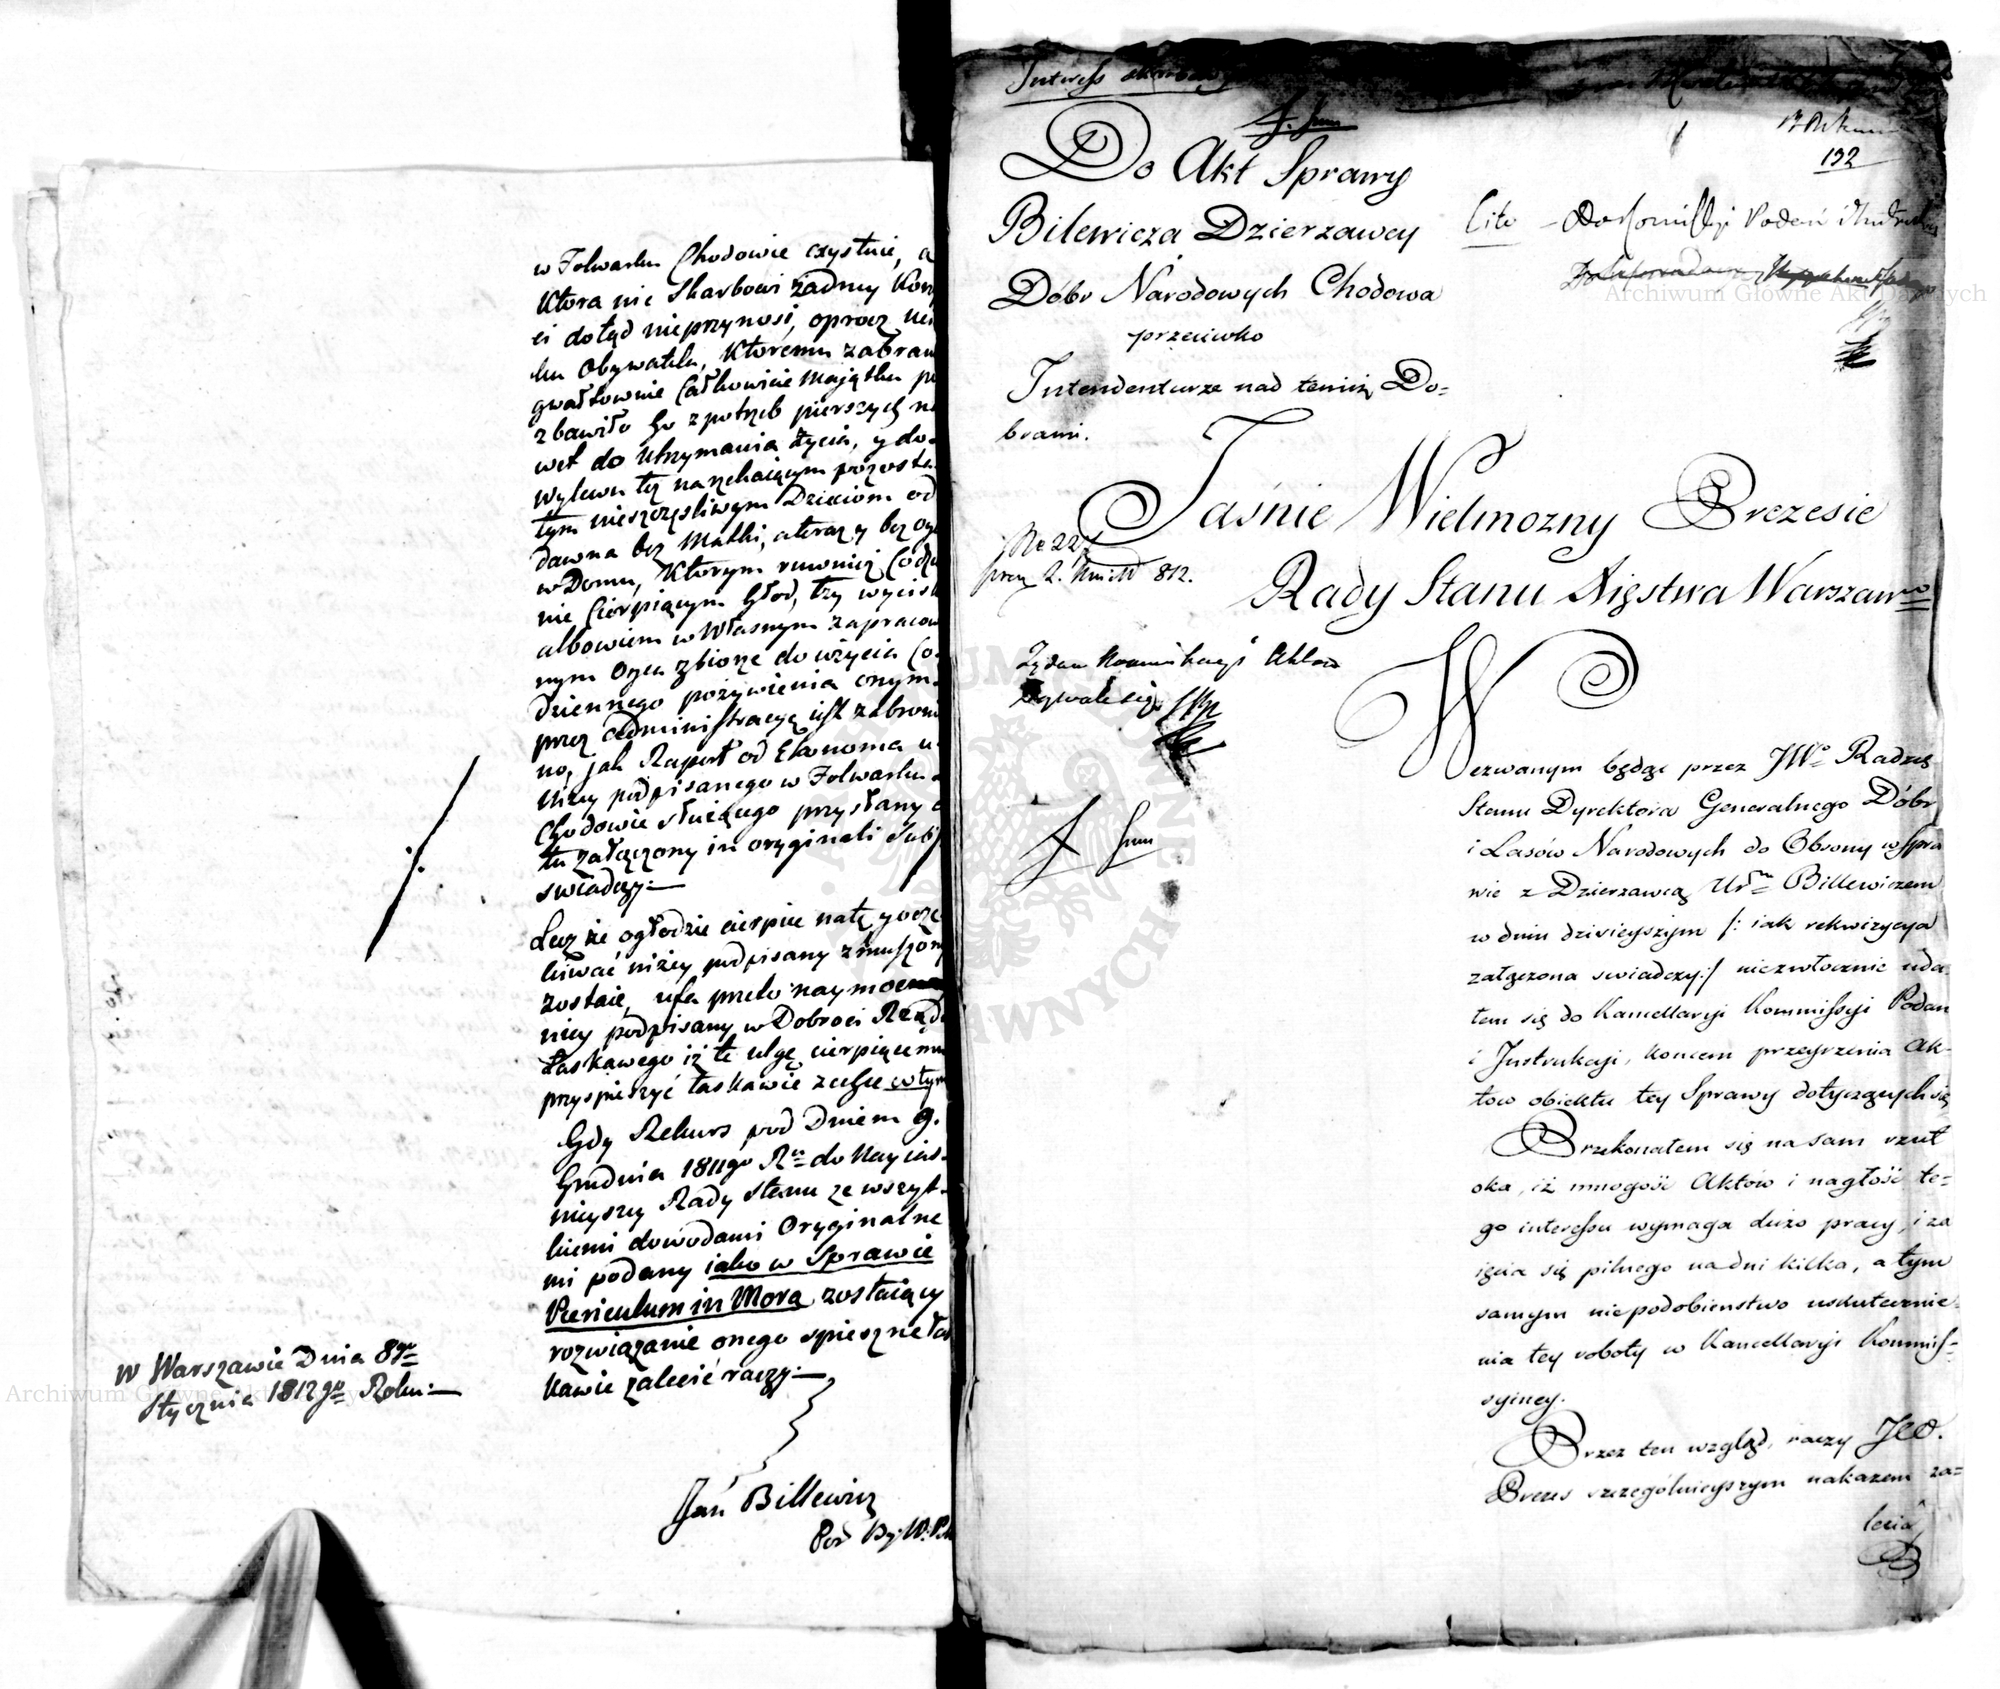 w Folwarku Chodowie czystnie, a
Ktora nie Skarbowi żadney Korz
ci dotąd nieprzynosi, oprocz uci
ku Obywatela, Ktoremu zabraw
gwałtownie Całkowicie Maiątku po
zbawiło Go z potrzeb pierszych na
wet do Utrzymania życia, y do
wylewu łez narzekaiącym pozosta
łym nieszczęsliwym Dzieciom od
dawna bez Matki, a teraz y bez oy
w Domu, Ktorym rownież Codz
nie Cierpiącym Głod, łzy wycisk
albowiem w Własnym zapracow
nym Oyca zbiorze do użycia Co
dziennego pożywienia onym
przez Administracyę iest zabroni
no, jak Raport od Ekonoma u
Niżey podpisanego w Folwarku
Chodowie służącego przysłany a
tu załączony in oryginali Sub
swiadczy:—
Lecz że ogłodzie cierpiec
kiwać niżey podpisany zmuszony
zostaie, ufa przeto naymocniey
niżey podpisany w Dobroci Rządu
Łaskawego iż te ulgę cierpiącemu
przyspieszyć łaskawie zechce w tym
Gdy Rekurs pod Dniem 9.
Grudnia 1811go Ru do Nayias-
nieyszey Rady Stanu ze wszyst-
kiemi dowodami Oryginalne
mi podany iako w Sprawie
Periculum in Mora zostaiący
rozwiązanie onego spieszne Łas
kawie zalecić raczy:—
W Warszawie Dnia 8go
Stycznia 1812go Roku:—
Jan Billewicz
Interess skarbowy
132
Do Akt Sprawy
Bilewicza Dzierzawcy
Dóbr Narodowych Chodowa
przeciwko
Intendenturze nad temiż Do-
brami.
Cito – Do Kommissyi Podań i Instrukcyi
Jaśnie Wielmozny Prezesie
Rady Stanu Xięstwa Warszawgo
No 22
812.
Wezwanym będąc przez JWo Radzcę
Stanu Dyrektora Generalnego Dóbr
i Lasów Narodowych do Obrony w Spra
wie z Dzierzawcą Urm Billewiczem
w dniu dzisieyszym /: iak rekwizycya
załączona swiadczy:/ niezwłocznie uda
łem się do Kancellaryi Kommissyi Podań
i Instrukcyi, koncem przeyrzenia Ak-
tow obiektu tey Sprawy dotyczących się
Przekonałem się na sam rzut
oka, iż mnogość Aktów i nagłość te-
go interessu wymaga dużo pracy, i za
ięcia się pilnego na dni kilka, a tym
samym niepodobienstwo uskutecznie-
nia tey roboty w Kancellaryi Kommis-
syiney.
Przez ten wzgląd, raczy JW.
Prezes szczególnieyszym nakazem za-
lecić
Archiwum Główne Akt Dawnych
Archiwum Główne Akt Dawnych